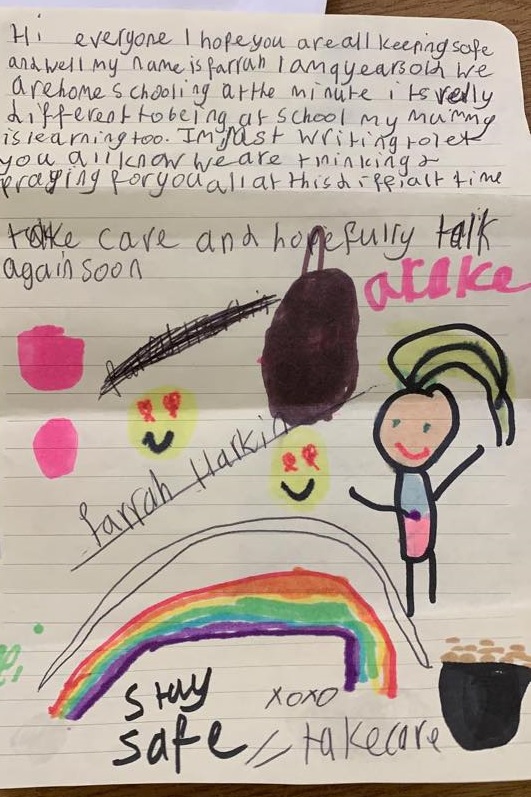 Hi everyone I hope you are all keeping safe
and well my name is farrah I am 9 years old we
are home schooling at the minute it's really
different to being at school my mummy
is learning too. I'm just writing to let
you all know we are thinking &
praying for you all at this difficalt time
take care and hopefully talk
again soon
Farrah Harkin
stay
safe
xoxo
takecare